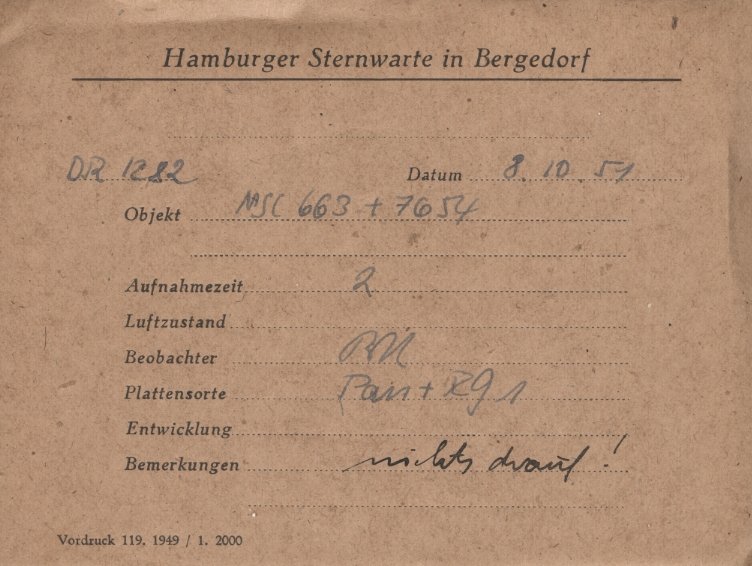 Hamburger Sternwarte in Bergedorf
DR 1282 Datum 8. 10. 51
Objekt NGC 663 + 7654
Aufnahmezeit 2
Luftzustand
Beobachter
Plattensorte Pan + RG 1
Entwicklung
Bemerkungen nichts drauf!
Vordruck 119. 1949 / 1. 2000